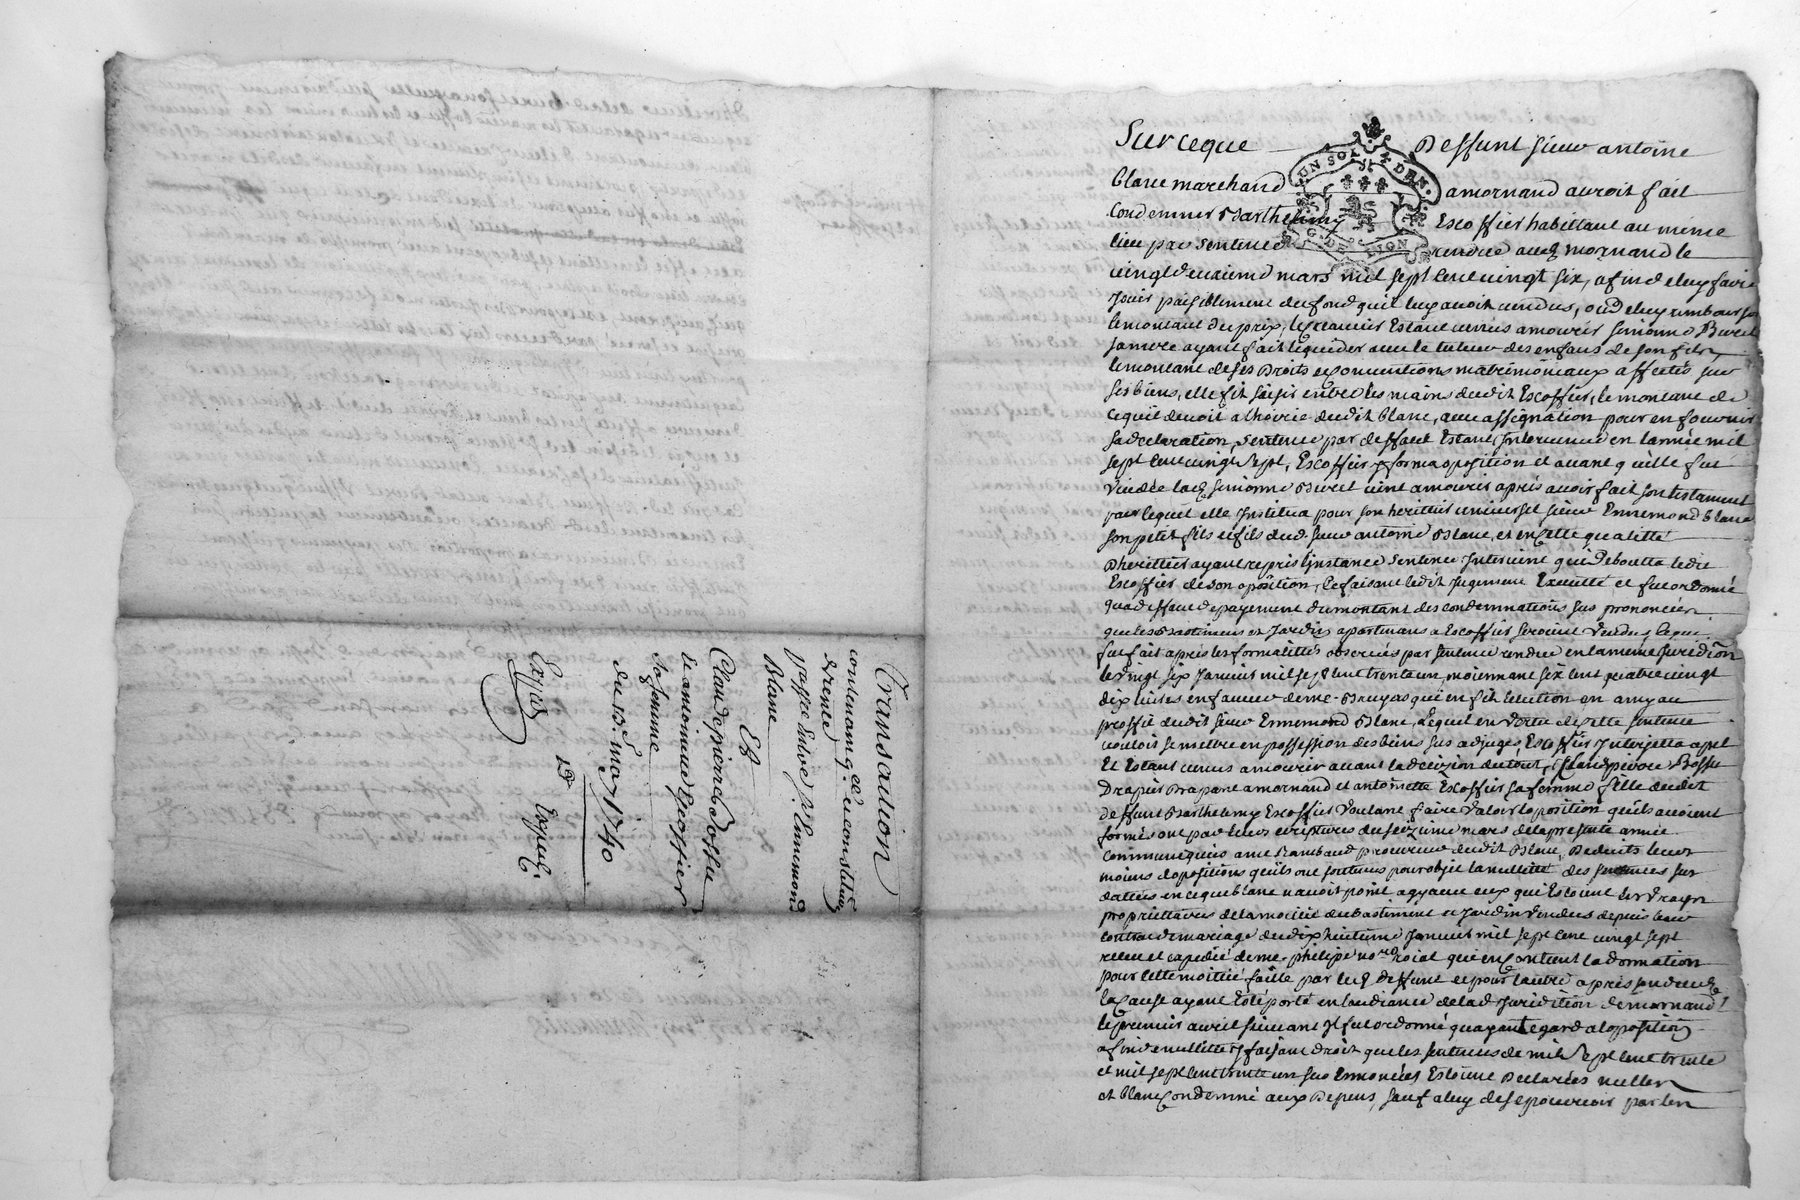 Transaction
contenant q.ce et constitu.on
de rente
passée entre s.r Ennemond
Blanc
Et
Claude pierre Bossu
et antoinette Escoffier
sa femme
du 13.e may 1740
Exped.
Sur ceque Deffunt sieur antoine
blanc marchand a mornand auroit fait
Condemner Barthelemy Escoffier habittant au même
lieu par sentence rendue aud mornand le
UN SOL DEN.
G. DE LYON
vingt deuxieme mars mil sept cent vingt six, afin de luy faire
Jouir paisiblement du fond quil luy auoit vendus, ou de luy rembourser
le montant du prix, le creancier Estant venus a mourir simonne Buret
sa mere ayant fait liquider auec le tuteur des enfans de son fils
le montant de ses Droits et conuentions matrimoniaux affectés sur
ses biens, elle fit saisir entre les mains dudit Escoffier, le montant de
ce quil deuoit a lhoirie dudit blanc, auec assignation pour en fournir
sa declaration, sentence par deffaut Estant Interuenue en lannée mil
sept cent vingt sept, Escoffier forma oposition et auant quelle fut
vuidée lad simonne Buret vint a mourir aprés auoir fait son testament
par lequel elle Institua pour son herittier uniuersel sieur Ennemond blanc
son petit fils et fils dud. sieur antoine Blanc, et en cette qualitté
D'herittier ayant repris linstance sentence Interuint qui Deboutta ledit
Escoffier de son oposition, ce faisant ledit Jugement Executté et fut ordonné
qua deffaut de payement du montant des condemnations sus prononcées
que les Bastimens et Jardin apartenans a Escoffier seroient Vendus, ce qui
fut fait aprés les formalittés obseruées par sentence rendue en la meme Juridi.on
le vingt six Januier mil sept cent trente un, moiennant six cent quatre vingt
dix liures en faueur de me. Bruyas qui en fit election en amy au
proffit dudit sieur Ennemond Blanc, Lequel en Vertu de cette sentence
voulois se mettre en possession des biens sus adjugés, Escoffier Interjetta apel
Et Estant venus a mourir auant la decizion du tout, Claude pierre Bossu
Drapier Drapant a mornand et antoinette Escoffier sa femme fille dudit
deffunt Barthelemy Escoffier Voulant faire Valoir loposition quils auoient
formés ont par leurs ecriptures du seizieme mars de la presente année
Communiquées a me Rambaud procureur dudit Blanc, Deduits leurs
moiens dopositions quils ont soutenus pour objet la nullitté des sentences sus
dattées en ce que blanc nauoit point agy contre eux qui Estoient les vrays
proprietaires de la moitié du bastiment et Jardin Vendus depuis leur
contrat de mariage du dix huitieme Januier mil sept cent vingt sept
receu et expedié de me. philipe no.re roial qui en contient la donnation
pour cette moitié faitte par led deffunt et pour lautre aprés son decés
la Cause ayant Esté portée en laudiance de lad Juridition de mornand
le premier auril suiuant Il fut ordonné quayant egard a loposition
afin de nullitté y faisant droit que les sentences de mil sept cent trente
et mil sept cent trente un sus Ennoncées Estoient Declarées nulles
et blanc condemné aux Depens, sauf a luy de se pouruoir par les